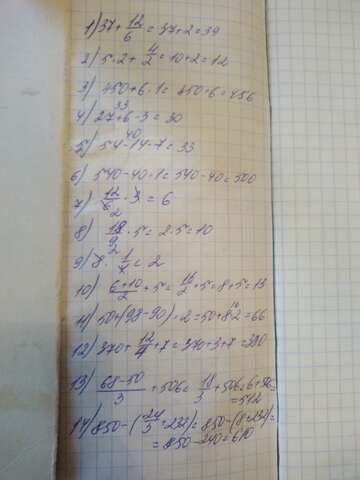 1) 37 + 12/6 = 37+2 = 39
2) 5·2 + 4/2 = 10+2 = 12
3) 450+6·1 = 450+6 = 456
33
4) 27+6-3 = 30
40
5) 54-14-7 = 33
6) 540-40·1 = 540-40 = 500
7) 12/2 · = 6
8) 18/9 ·5 = 2·5 = 10
2
9) 8· 1/4 = 2
10) (6+10)/2 +5 = 16/2 +5 = 8+5 = 13
11) 50+(98-90)·2 = 50+8·2 = 66
12) 370+ 12/4 +7 = 370+3+7 = 380
13) (68-50)/3 +506 = /3 +506 = 6+506
= 512
14) 850-(24/3 +232) = 850-(8+232) =
= 850-240 = 610